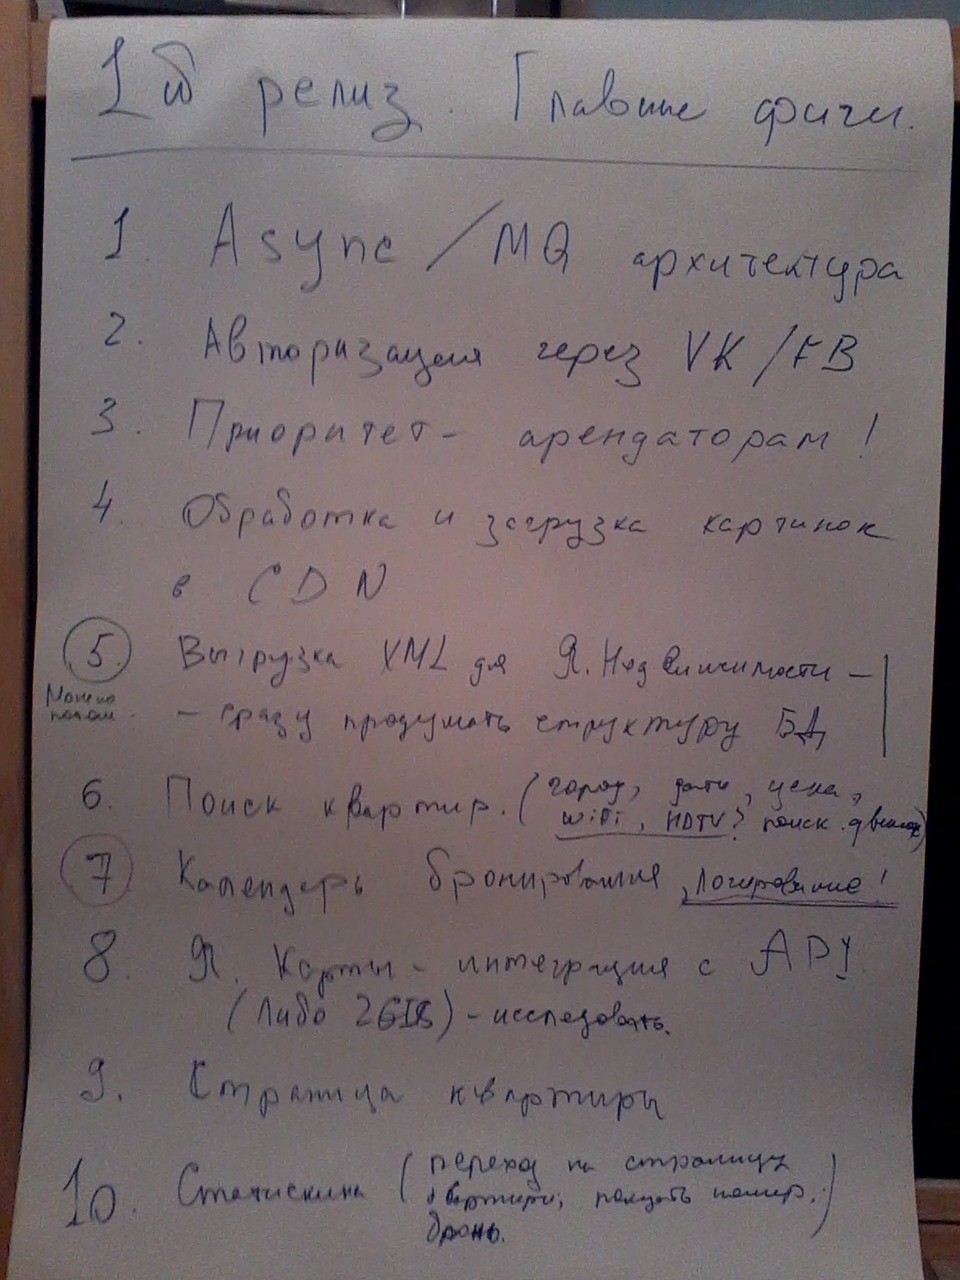 1й релиз. Главные фичи.
1. Async / MQ архитектура
2. Авторизация через VK / FB
3. Приоритет - арендаторам!
4. Обработка и загрузка картинок
в CDN
5. Выгрузка XML для Я.Недвижимости -
Можно
потом. - сразу продумать структуру БД
6. Поиск квартир. (город, даты, цена,
WiFi, HDTV? поиск.
7 Календарь бронирования, логирование!
8. Я. Карты - интеграция с API.
(либо 2GIS) - исследовать.
9. Страница квартиры
10. (переход на страницу
квартиры; номер.)
бронь.